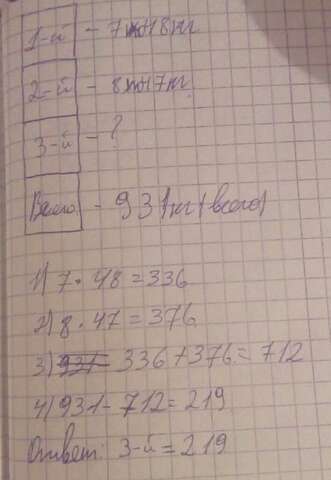 1-й - 7м по 48 кг
2-й - 8м по 47 кг
3-й - ?
Всего - 931 кг (всего)
1) 7 · 48 = 336
2) 8 · 47 = 376
3) 931- 336 + 376 = 712
4) 931 - 712 = 219
Ответ: 3-й = 219